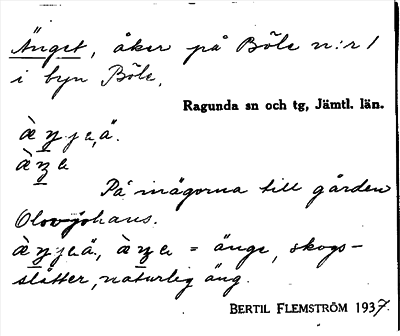 Änget, åker på Böle n:r 1
i byn Böle.
Ragunda sn och tg, Jämtl. län.
På inägorna till gården
Olov-johans.
= änge, skogs-
slåtter, naturlig äng.
BERTIL FLEMSTRÖM 1937.